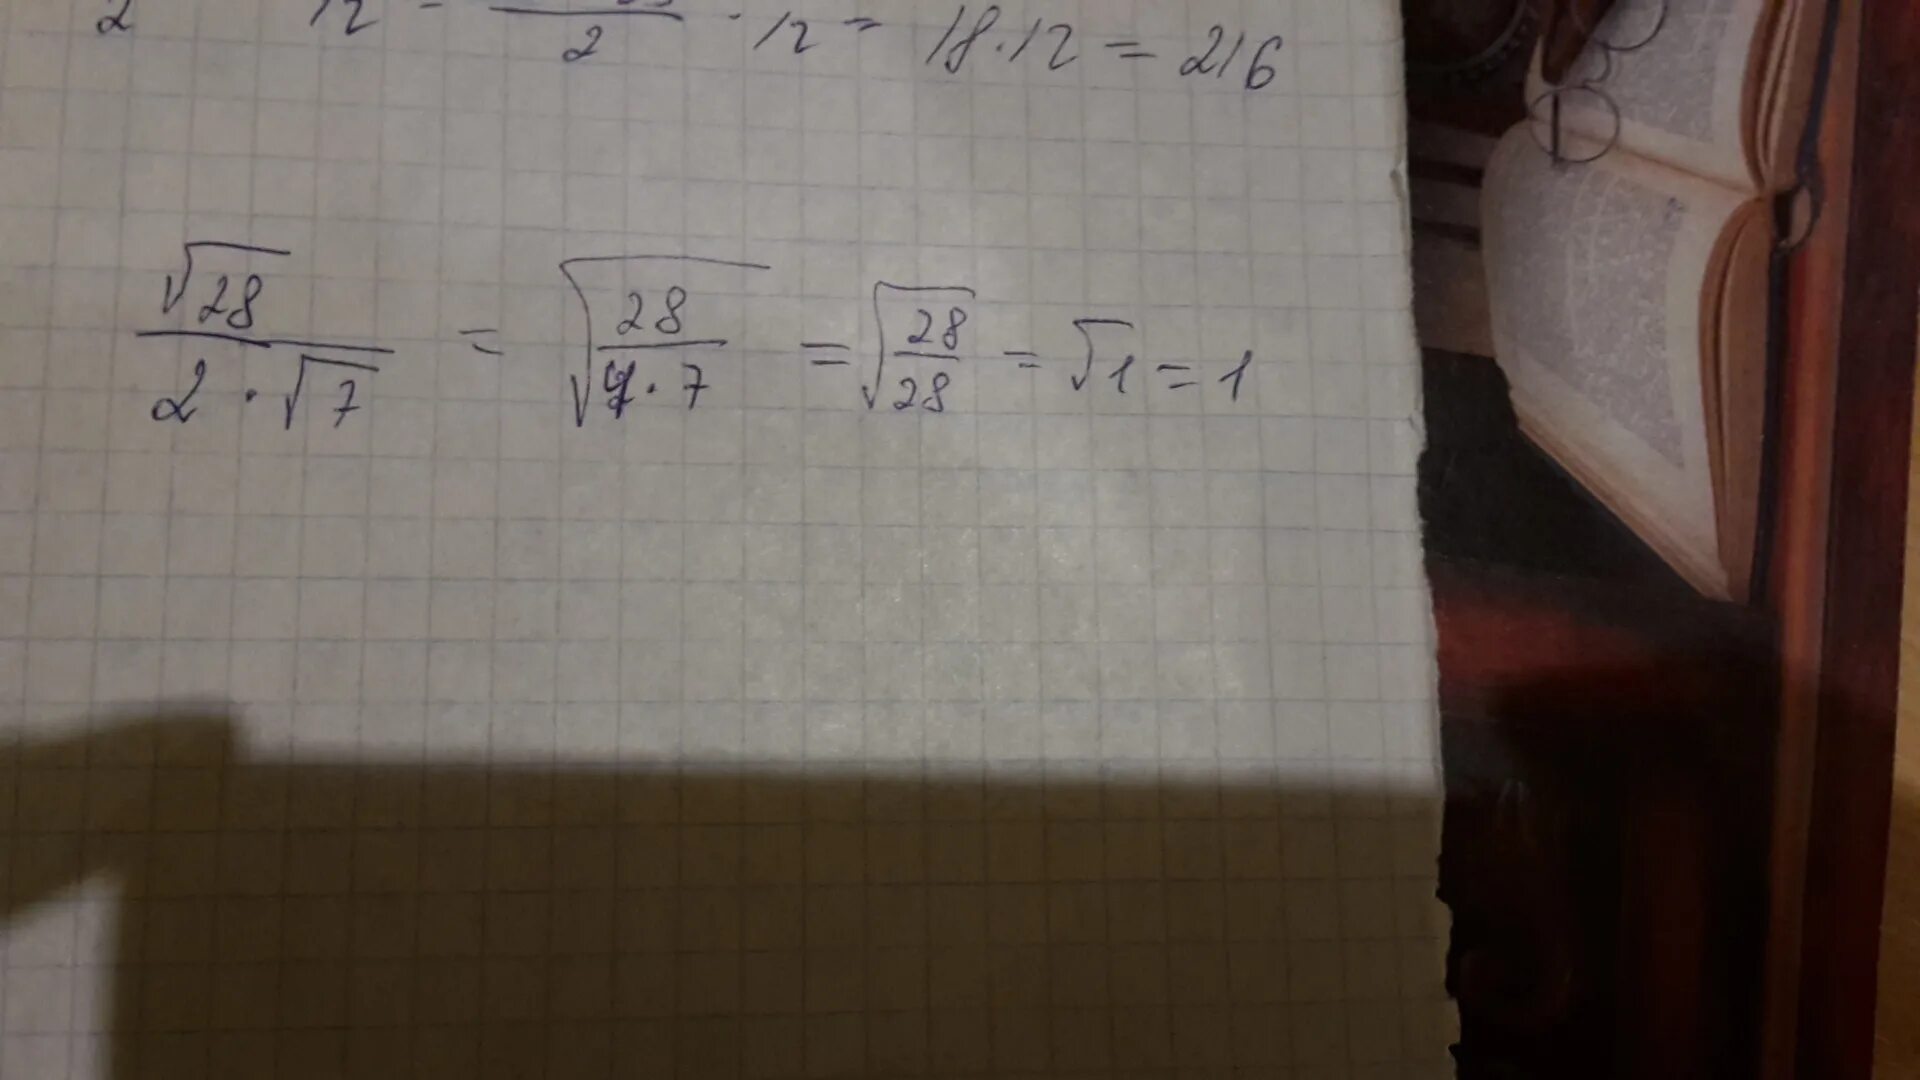 2 12 = 2 · 12 = 18 · 12 = 216
√28 / 2 · √7 = √(28 / 4 · 7) = √(28 / 28) = √1 = 1